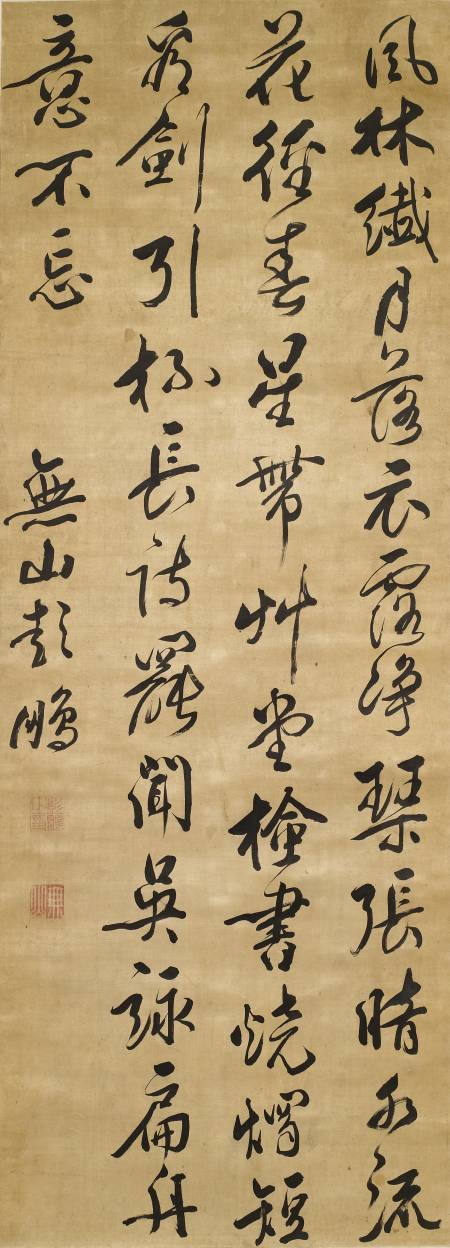 風林纖月落衣露淨琹張暗水流
花徑春星帶艸堂檢書燒燭短
看劍引杯長詩罷聞吳詠扁舟
意不忘
無山彭鵬